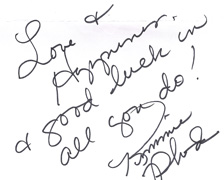 Love &
Happiness.
& good luck in
all you do!
Rhodes